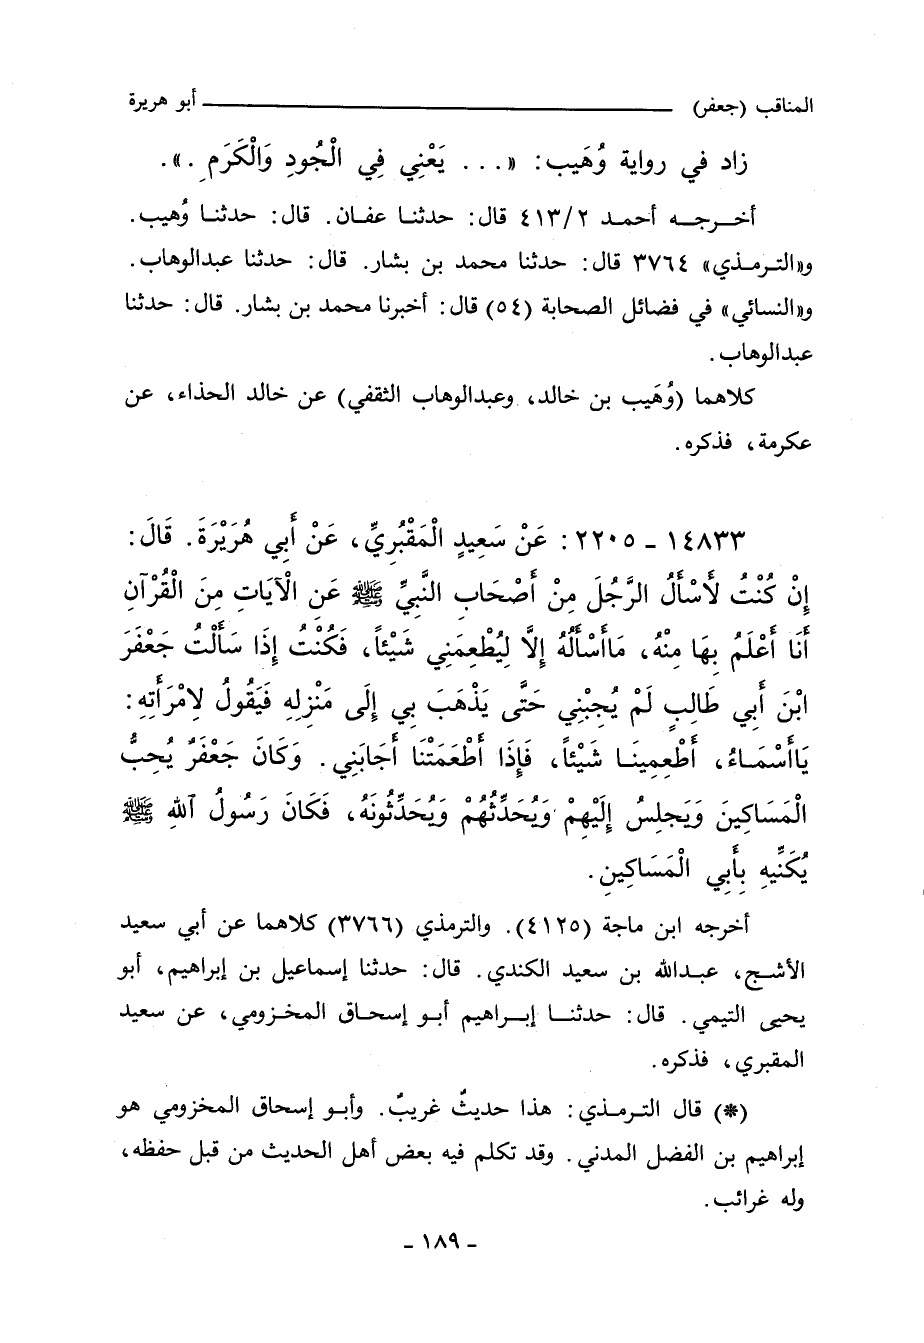 المناقب (جعفر) ــــــــــ أبو هريرة
زاد في رواية وُهَيب: «... يَعْنِي فِي الْجُودِ وَالْكَرَمِ .».
أخرجه أحمد ٤١٣/٢ قال: حدثنا عفان. قال: حدثنا وُهيب.
و«الترمذي» ٣٧٦٤ قال: حدثنا محمد بن بشار. قال: حدثنا عبدالوهاب.
و«النسائي» في فضائل الصحابة (٥٤) قال: أخبرنا محمد بن بشار. قال: حدثنا
عبدالوهاب.
كلاهما (وُهَيب بن خالد، وعبدالوهاب الثقفي) عن خالد الحذاء، عن
عكرمة، فذكره.
١٤٨٣٣ ـ ٢٢٠٥: عَنْ سَعِيدٍ الْمَقْبُرِيِّ، عَنْ أَبِي هُرَيْرَةَ. قَالَ:
إِنْ كُنْتُ لَأَسْأَلُ الرَّجُلَ مِنْ أَصْحَابِ النَّبِيِّ ﷺ عَنِ الْآيَاتِ مِنَ الْقُرْآنِ
أَنَا أَعْلَمُ بِهَا مِنْهُ، مَاأَسْأَلُهُ إِلَّا لِيُطْعِمَنِي شَيْئاً، فَكُنْتُ إِذَا سَأَلْتُ جَعْفَرَ
ابْنَ أَبِي طَالِبٍ لَمْ يُجِبْنِي حَتَّى يَذْهَبَ بِي إِلَى مَنْزِلِهِ فَيَقُولُ لِامْرَأَتِهِ:
يَاأَسْمَاءُ، أَطْعِمِينَا شَيْئاً، فَإِذَا أَطْعَمَتْنَا أَجَابَنِي. وَكَانَ جَعْفَرٌ يُحِبُّ
الْمَسَاكِينَ وَيَجْلِسُ إِلَيْهِمْ وَيُحَدِّثُهُمْ وَيُحَدِّثُونَهُ، فَكَانَ رَسُولُ ٱللهِ ﷺ
يُكَنِّيهِ بِأَبِي الْمَسَاكِينِ.
أخرجه ابن ماجة (٤١٢٥). والترمذي (٣٧٦٦) كلاهما عن أبي سعيد
الأشج، عبدالله بن سعيد الكندي. قال: حدثنا إسماعيل بن إبراهيم، أبو
يحيى التيمي. قال: حدثنا إبراهيم أبو إسحاق المخزومي، عن سعيد
المقبري، فذكره.
(*) قال الترمذي: هذا حديثٌ غريبٌ. وأبو إسحاق المخزومي هو
إبراهيم بن الفضل المدني. وقد تكلم فيه بعض أهل الحديث من قبل حفظه،
وله غرائب.
ـ ١٨٩ ـ